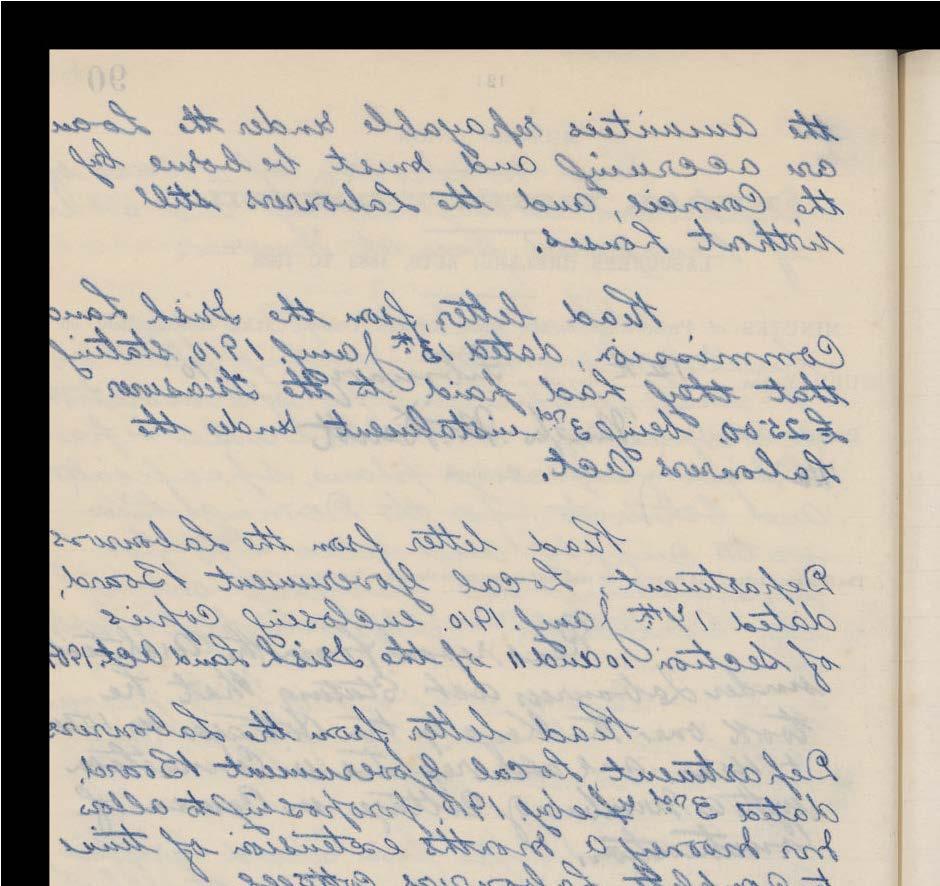 90
the annuities repayable under the Loan
are accruing and must be borne by
the Council, and the Labourers still
without houses.
Read letter from the Irish Land
Commission, dated 15th Jany. 1910, stating
that they had paid to the Treasurer
£2500, being 3rd instalment under the
Labourers Act.
Read letter from the Labourers
Department, Local Government Board,
dated 17th Jany. 1910. enclosing copies
of Section 10 and 11 of the Irish Land Act 190
Read letter from the Labourers
Department Local Government Board,
dated 3rd Feby. 1910, proposing to allow
Mr Mooney a months extension of time
Labourers cottages